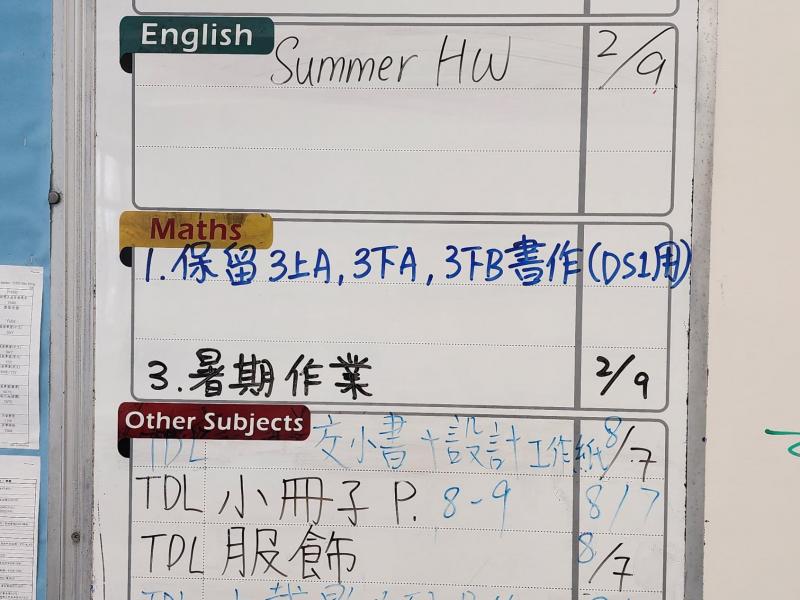 English
Summer HW 2/9
Maths
1.保留3上A,3下A,3下B書作(DS1用)
3.暑期作業 2/9
Other Subjects
TDL 交小書+設計工作紙 8/7
TDL 小冊子 P. 8-9 8/7
TDL 服飾 8/7
TDL